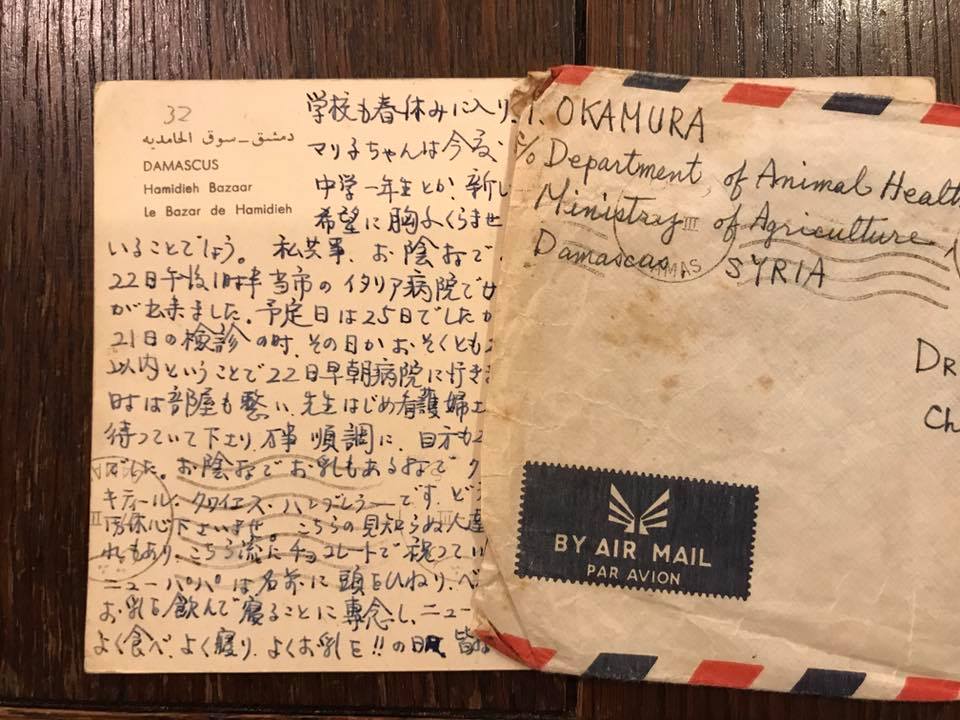 32
دمشق - سوق الحامديه
DAMASCUS
Hamidieh Bazaar
Le Bazar de Hamidieh
学校も春休みに入り、
マリ子ちゃんは今度
中学一年生とか、新し
希望に胸ふくらませ
いることでしょう。 私共事、お陰様で、
22日午後1時半当市のイタリア病院で女
が出来ました。予定日は25日でしたが
21日の検診の時、その日かおそくとも2
以内ということで22日早朝病院に行きま
時は部屋も整い、先生はじめ看護婦さ
待っていて下さり、万事順調に、目方も
でした。お陰様でお乳もある様で
キティール・クワイエス・ハンドレラーです。ど
御休心下さいませ。 こちらの見知らぬ人達
れもあり、こちら流にチョコレートで祝ってい
ニューパパは名前に頭をひねり、ベ
お乳を飲んで寝ることに専念し、ニュー
よく食べ、よく寝り、よくお乳を!!の日、皆
I. OKAMURA
c/o Department of Animal Health
Ministry of Agriculture
Damascus, SYRIA
DR
Ch
BY AIR MAIL
PAR AVION